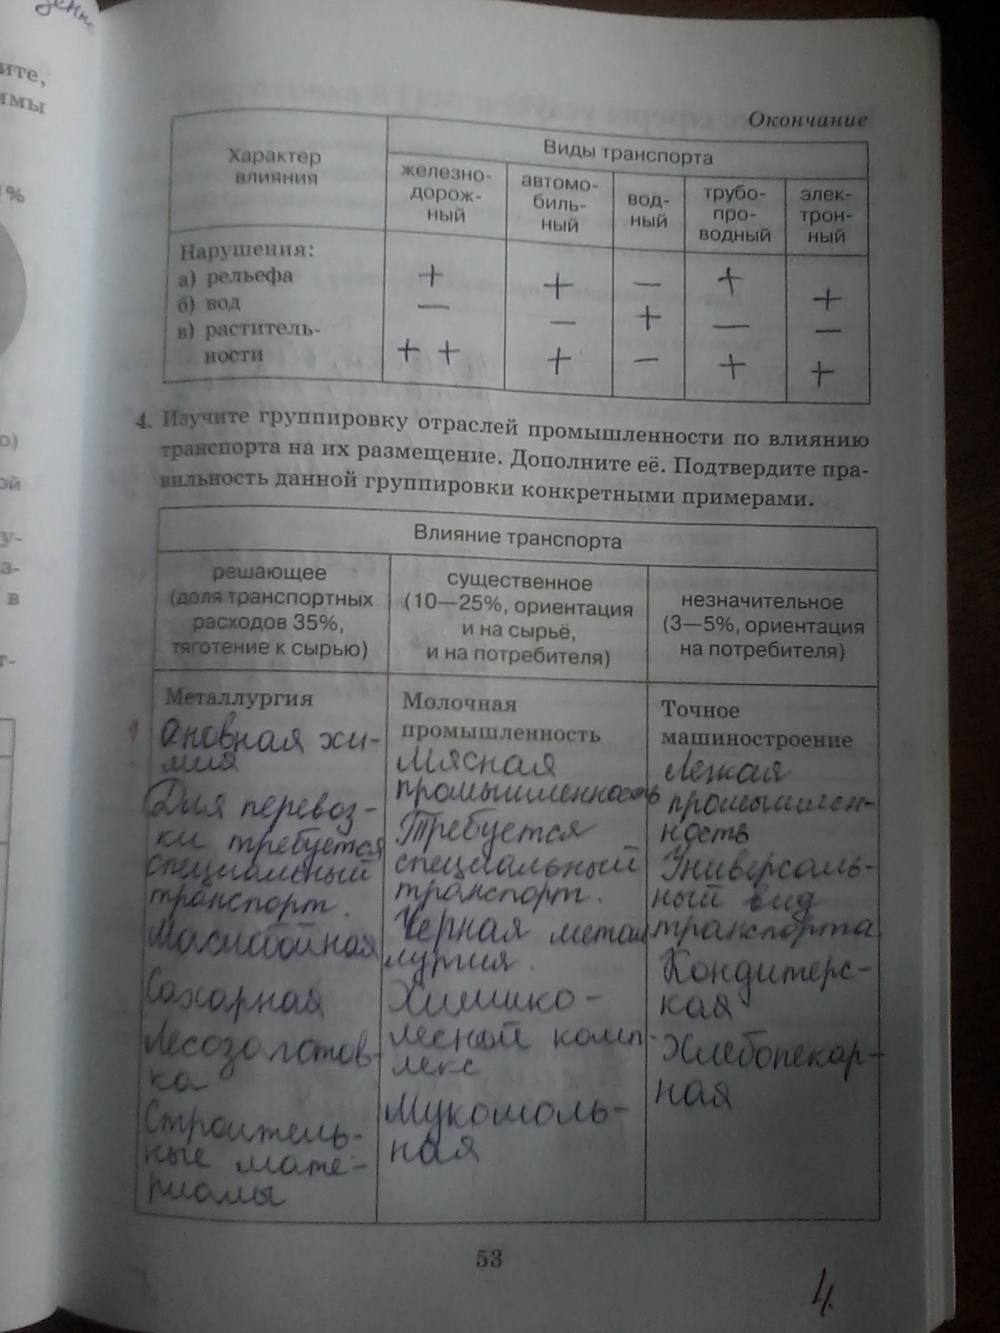 ите,
%
Окончание
Характер
влияния
Виды транспорта
железно-
дорож-
ный
автомо-
биль-
ный
вод-
ный
трубо-
про-
водный
элек-
трон-
ный
Нарушения:
а) рельефа + + — + +
б) вод — — + — —
в) раститель-
ности + + + — + +
4. Изучите группировку отраслей промышленности по влиянию
транспорта на их размещение. Дополните её. Подтвердите пра-
вильность данной группировки конкретными примерами.
Влияние транспорта
решающее
(доля транспортных
расходов 35%,
тяготение к сырью)
существенное
(10—25%, ориентация
и на сырьё,
и на потребителя)
незначительное
(3—5%, ориентация
на потребителя)
Металлургия
Оновная хи-
мия
Для перевоз-
ки требуется
специальный
транспорт.
Маслобойная
Сахарная
Лесозаготов-
ка
Строитель-
ные мате-
риалы
Молочная
промышленность
Мясная
промышленность
Требуется
специальный
транспорт.
Черная метал
лургия.
Химико-
лесной комп-
лекс
Мукомоль-
ная
Точное
машиностроение
Легкая
промышлен-
ность
Универсаль-
ный вид
транспорта
Кондитерс-
кая
Хлебопекар-
ная
53
4.